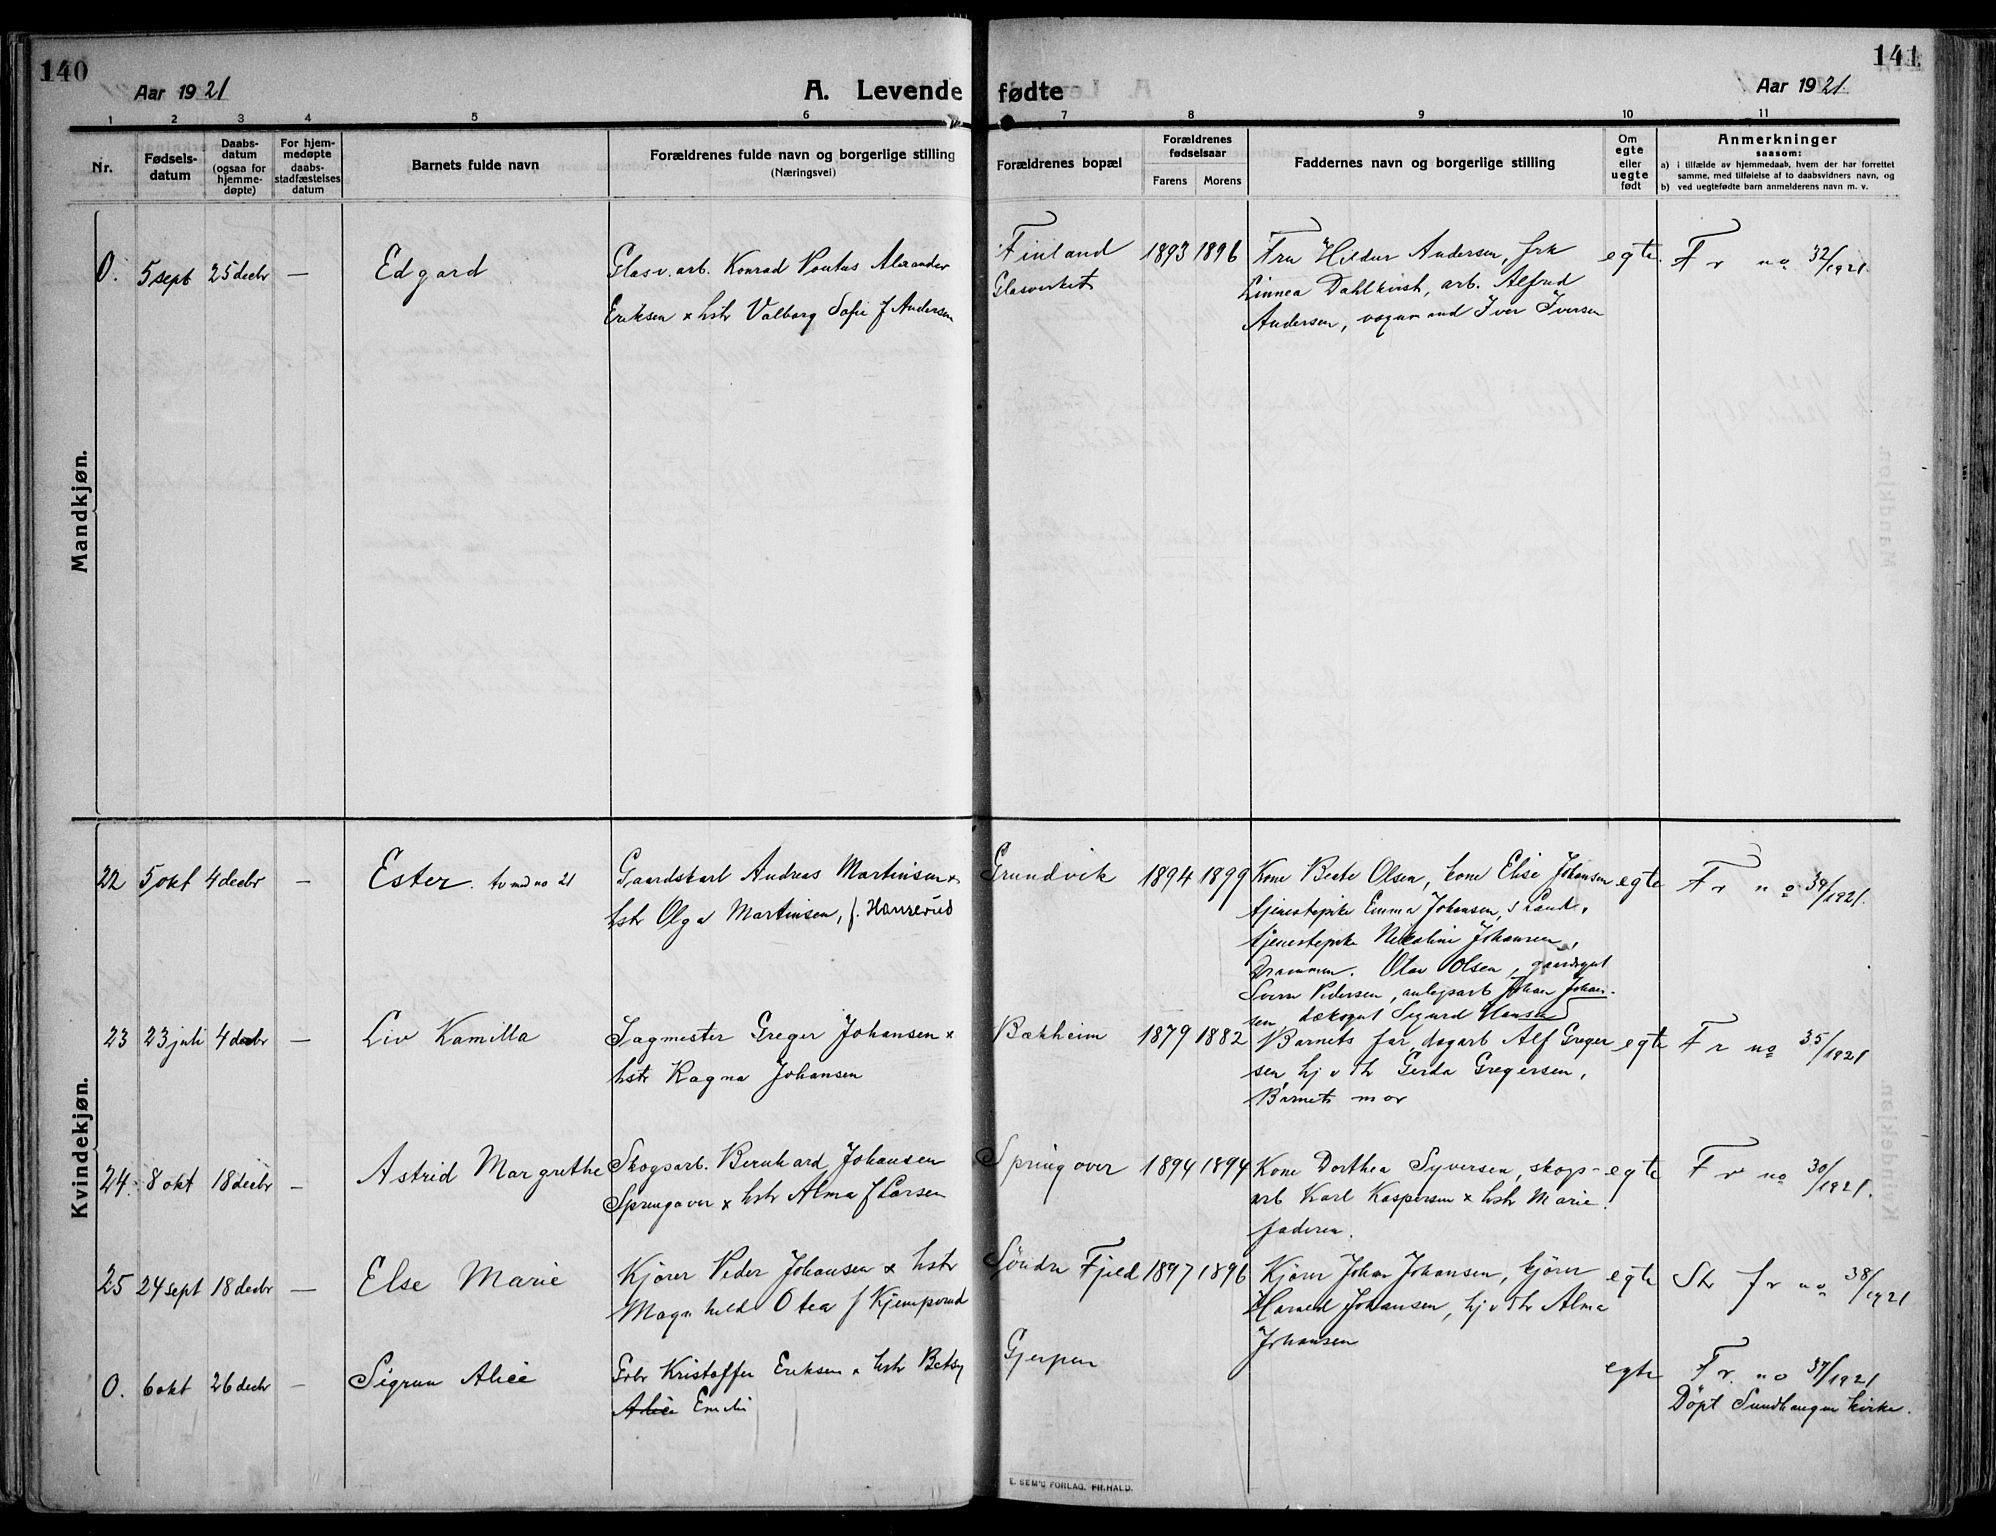 140
Aar 1921
A. Levende fødte
Aar 1921.
141
1 2 3 4 5 6 7 8 9 10 11
Nr.
Fødsels-
datum
Daabs-
datum
(ogsaa for
hjemme-
døpte)
For hjem-
medøpte
daabs-
stadfæstelses
datum
Barnets fulde navn
Forældrenes fulde navn og borgerlige stilling
(Næringsvei)
Forældrenes bopæl
Forældrenes
fødselsaar
Farens Morens
Faddernes navn og borgerlige stilling
Om
egte
eller
uegte
født
Anmerkninger
saasom:
a) i tilfælde av hjemmedaab, hvem der har forrettet
samme, med tilføielse af to daabsvidners navn, og
b) ved uegtefødte barn anmelderens navn m. v.
Mandkjøn.
0. 5 sept 25 decbr — Edgard
Glasv. arb. Konrad Pontus Alexander
Eriksen x hstr Valborg Sofie f Andersen
Finland
Glasverket
1893 1896
Fru Hildur Andersen, frk
Linnea Dahlkvist, arb. Alfred
Andersen, vognmand Iver Iversen
egte.
Fr no 32/1921.
Kvindekjøn.
22 5 okt 4 decbr — Ester. tv md no 21
Gaardskarl Andreas Martinsen x
hstr Olga Martinsen, f. Hansevied
Grundvik
1894 1899
Kone Beate Olsen, kone Elise Johansen
tjenestepike Emma Johansen, Sand.
tjenestepike Nikoline Johansen,
Drammen. Olav Olsen, gaardsgut
Sverre Pedersen, anlegsarb Johan Johan-
sen, dæksgut Sigurd Hansen
egte
Fr no 34/1921.
23 23 juli 4 decbr — Liv Kamilla
Sagmester Greger Johansen x
hstr Ragna Johansen
Bækheim
1879 1882
Barnets far, dagarb Alf Greger
sen, hj v Th Gerda Gregersen,
Barnets mor
egte
Fr no 35/1921
24. 8 okt 18 decbr — Astrid Margrethe
Skogsarb. Bernhard Johansen
Springover x hstr Alma f Larsen
Springover
1894 1894
Kone Dorthea Syversen, skogs-
arb Karl Kaspersen x hstr Marie.
faderen.
egte
Fr no 30/1921.
25 24 sept 18 decbr — Else Marie
Kjører Peder Johansen x hstr
Magnhild Otea f Kjemprud
Søndre Fjeld
1897 1896
Kjører Johan Johansen, kjører
Harald Johansen, hj v Th Alma
Johansen
egte
Str fr no 38/1921
0. 6 okt 26 decbr — Sigrun Alice
Grbr Kristoffer Eriksen x hstr Betsy
Alice Emelie
Gjerpen
egte
Fr. no 37/1921
Døpt Sundhaugen kirke.
E. SEM'S FORLAG, FR.HALD.